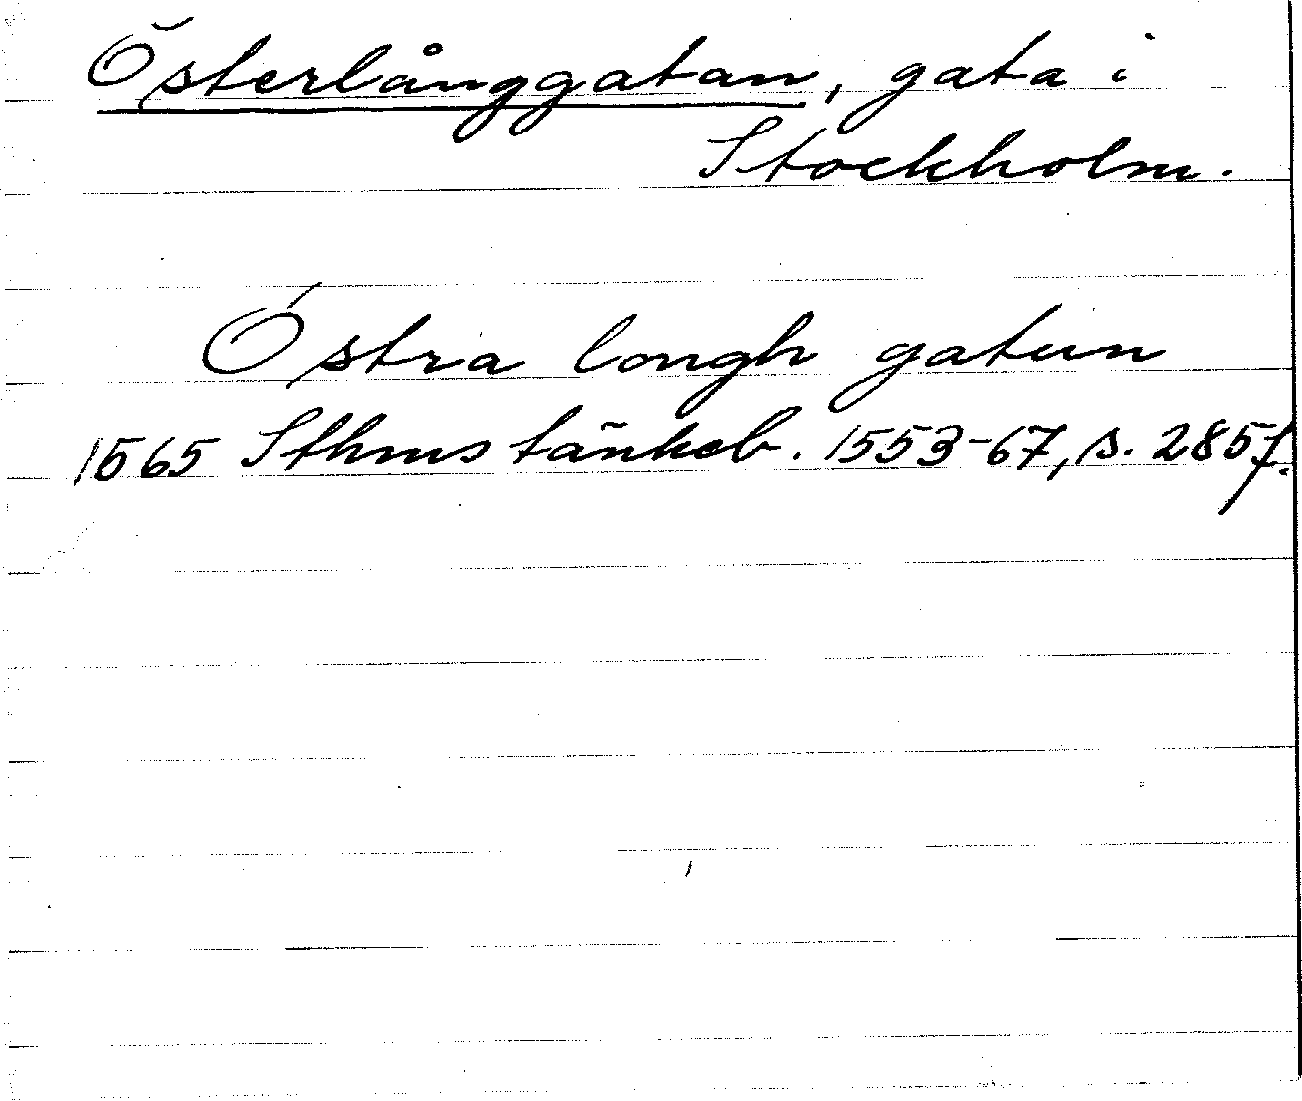 Österlånggatan, gata i
Stockholm.
Östra longh gatun
1565 Sthms tänkeb. 1553-67, s. 285f.